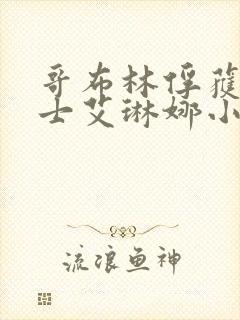 哥布林俘獲
士艾琳娜小
流浪鱼神